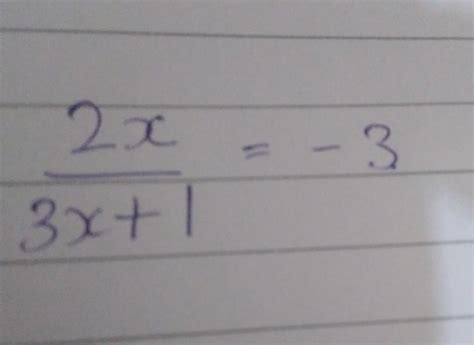 2x
= -3
3x+1